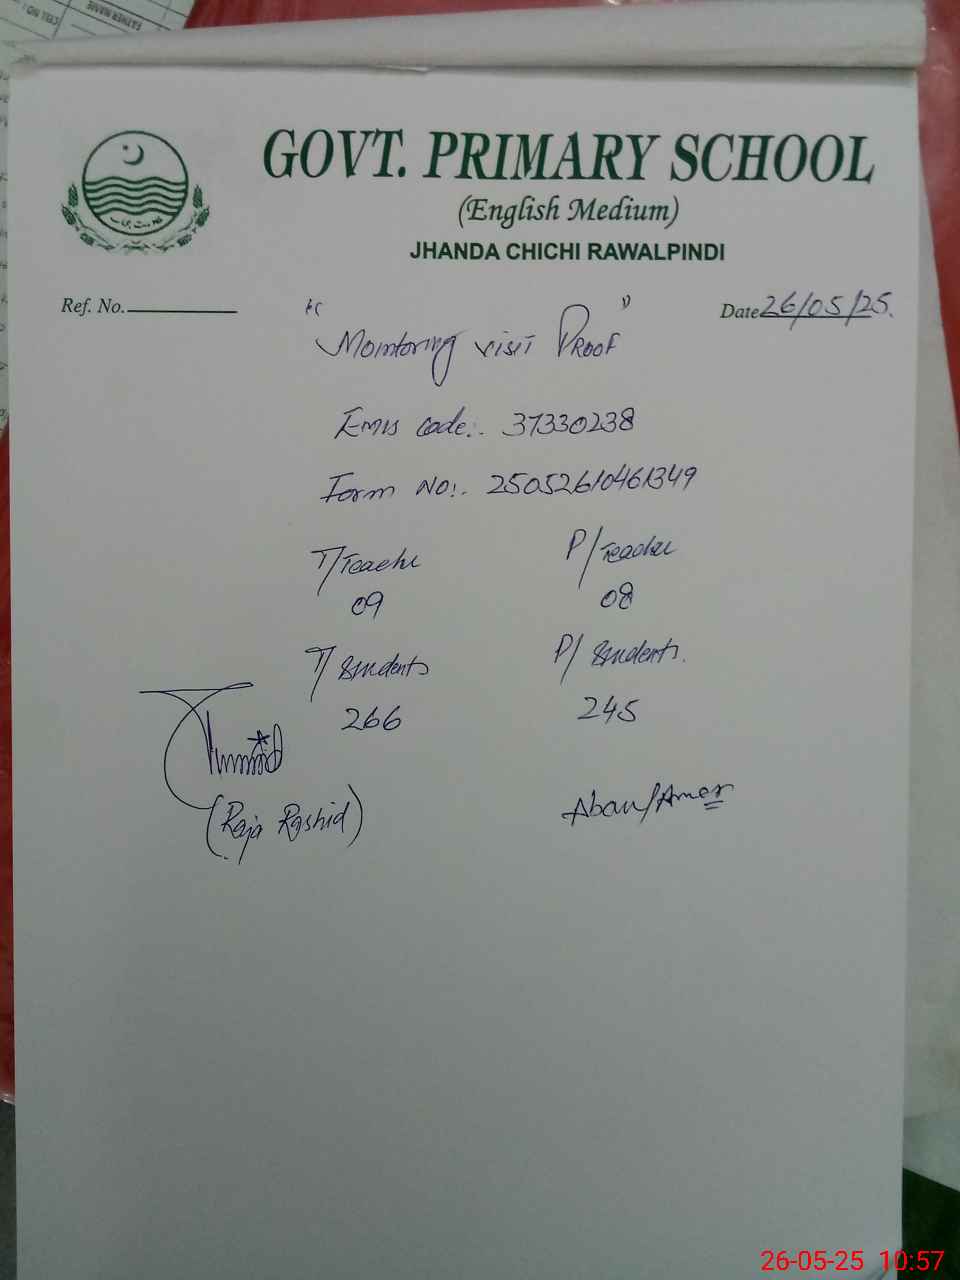 GOVT. PRIMARY SCHOOL
(English Medium)
JHANDA CHICHI RAWALPINDI
Ref. No.
Date 26/05/25.
"Monitoring visit Proof"
Emis code:. 37330238
Form No:. 25052610461349
T/Teacher P/Teacher
09 08
T/Students P/Students.
266 245
(Raja Rashid)
CELL NO:
FATHER NAME
26-05-25 10:57